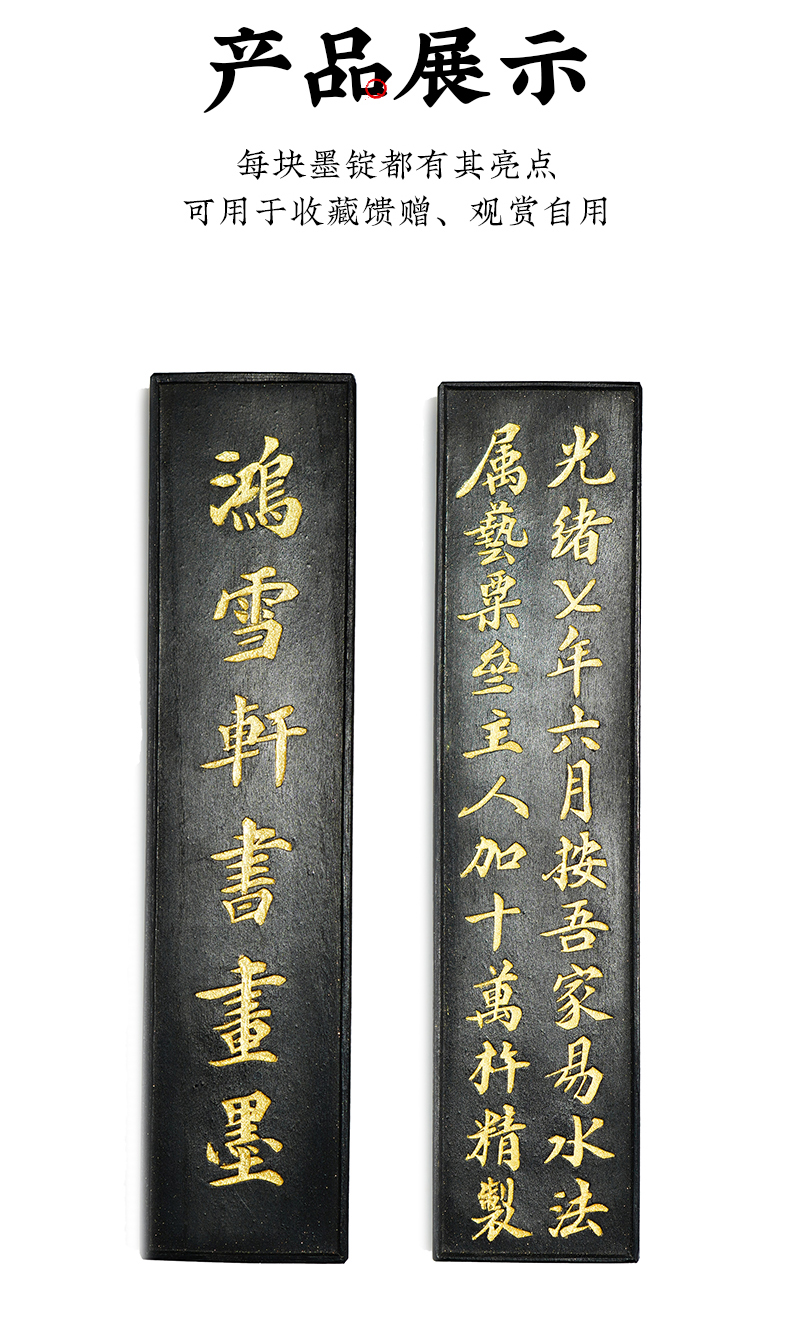 产品展示
每块墨锭都有其亮点
可用于收藏馈赠、观赏自用
鴻雪軒書畫墨
光绪七年六月按吾家易水法
属藝粟叁主人加十萬杵精製